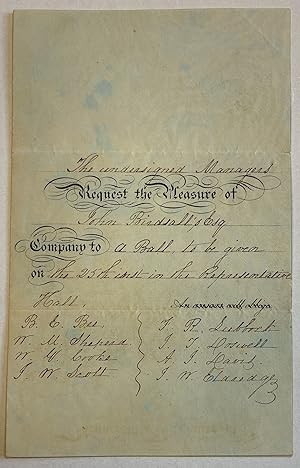 The undersigned Managers
Request the Pleasure of
John Birdsall's Esq
Company to a Ball, to be given
on the 25th inst in the Representative
Hall,
B. E. Bee,
W. M. Shepherd
W. G. Cooke
J. W. Scott
F. R. Lubbock
J. T. Doswell
A. J. Davis
J. W. Eldridge